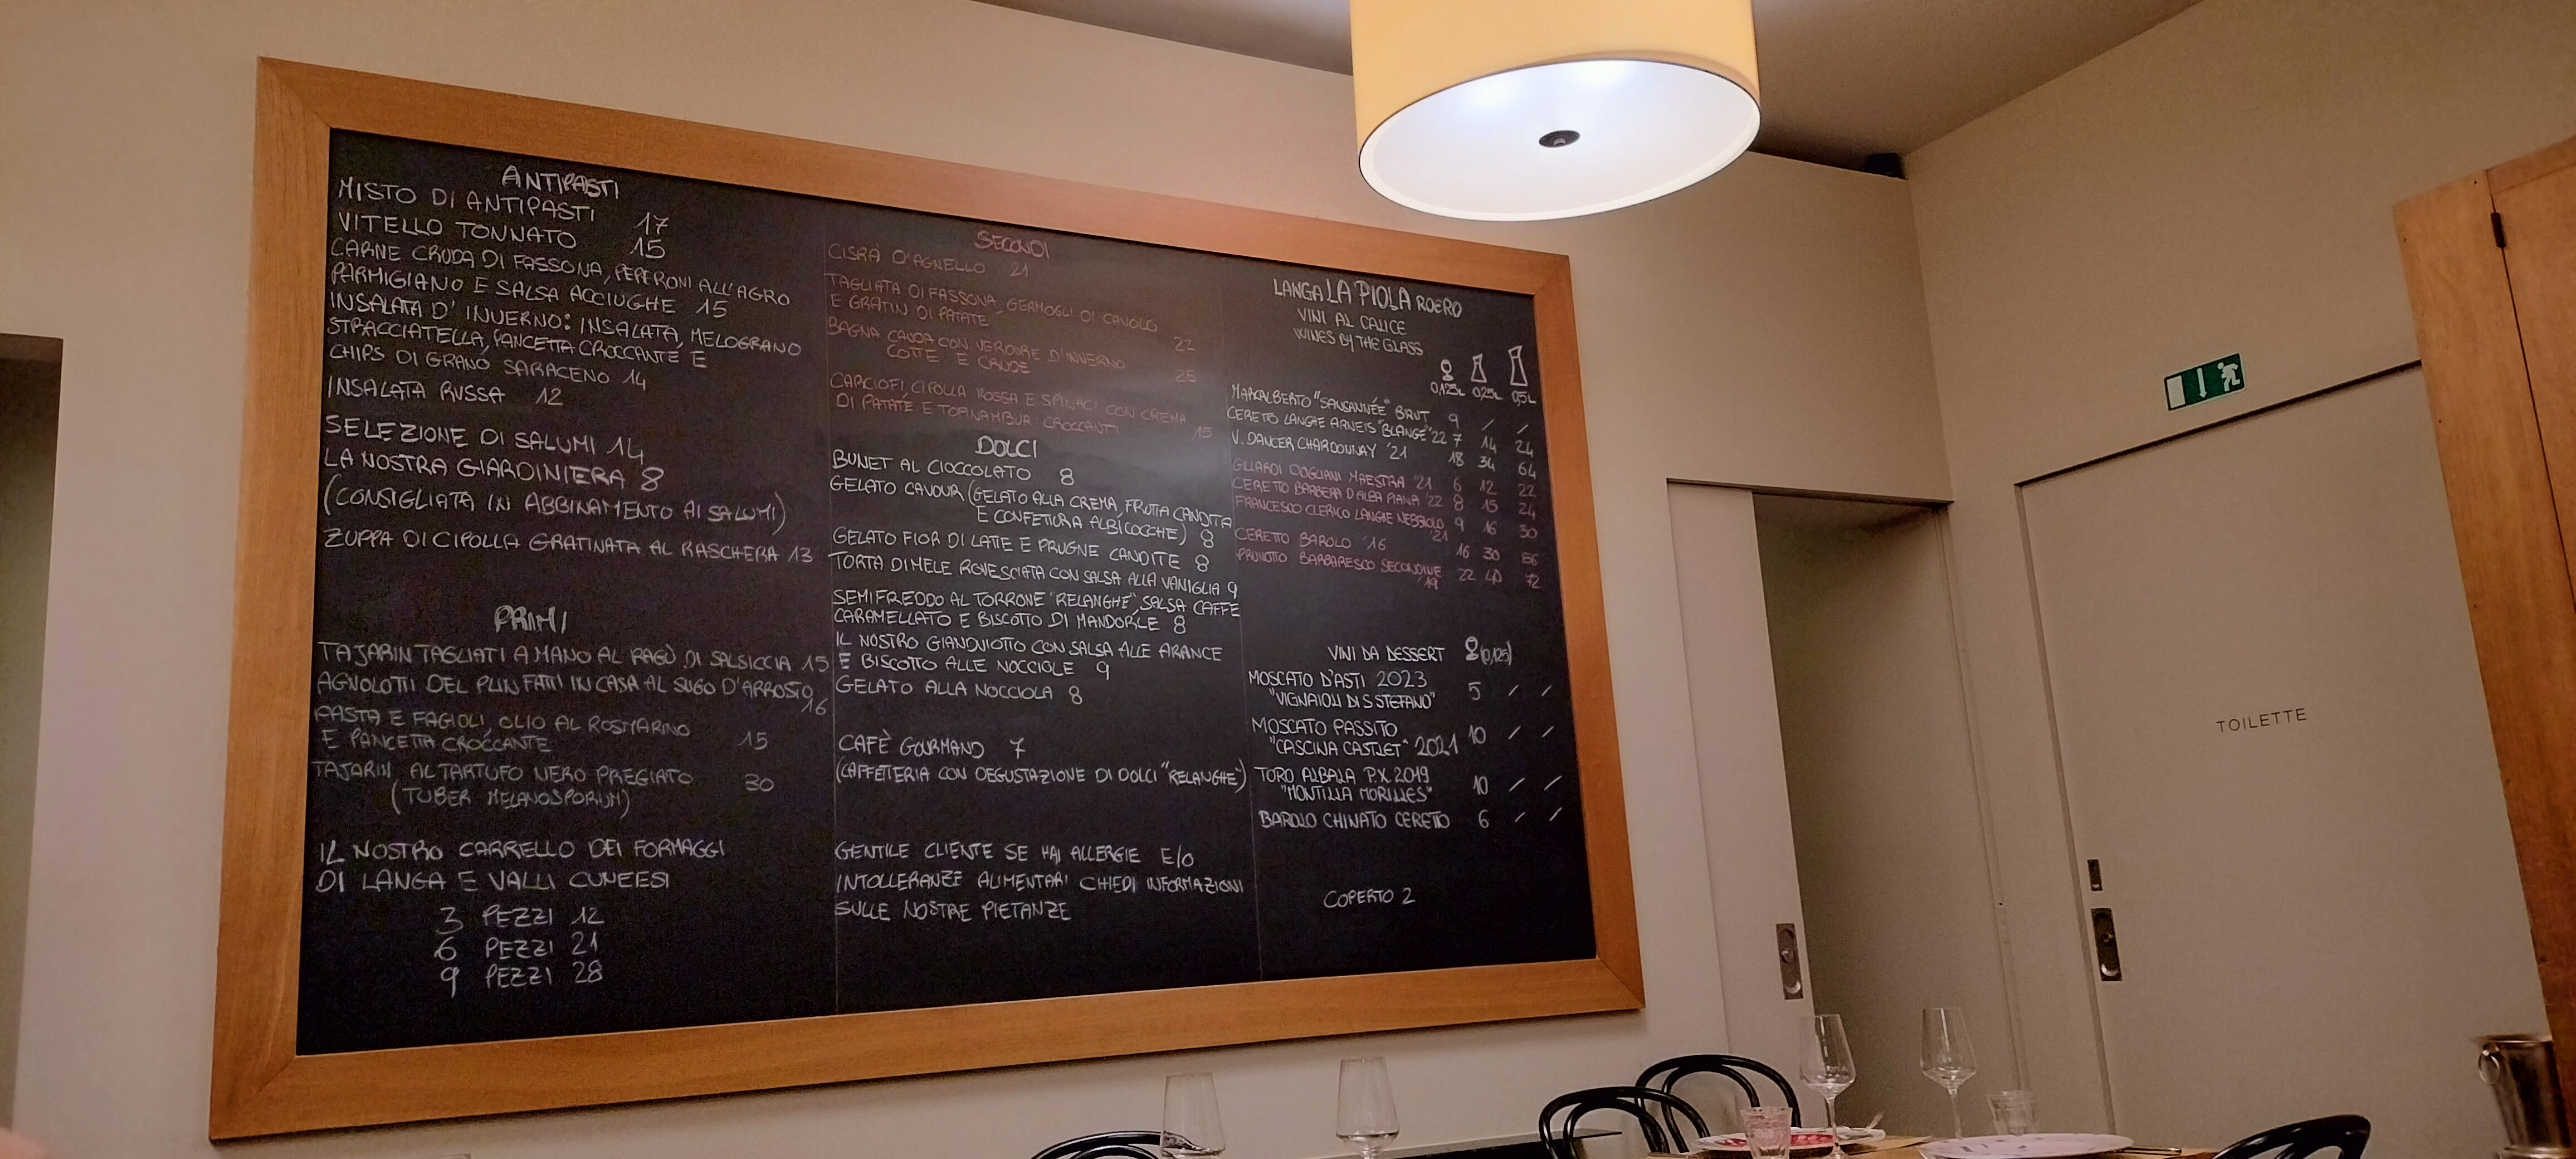 ANTIPASTI
MISTO DI ANTIPASTI 17
VITELLO TONNATO 15
CARNE CRUDA DI FASSONA, PEPERONI ALL'AGRO
PARMIGIANO E SALSA ACCIUGHE 15
INSALATA D'INVERNO: INSALATA, MELOGRANO
STRACCIATELLA, PANCETTA CROCCANTE E
CHIPS DI GRANO SARACENO 14
INSALATA RUSSA 12
SELEZIONE DI SALUMI 14
LA NOSTRA GIARDINIERA 8
(CONSIGLIATA IN ABBINAMENTO AI SALUMI)
ZUPPA DI CIPOLLA GRATINATA AL RASCHERA 13
PRIMI
TAJARIN TAGLIATI A MANO AL RAGÙ DI SALSICCIA 15
AGNOLOTTI DEL PLIN FATTI IN CASA AL SUGO D'ARROSTO
16
PASTA E FAGIOLI, OLIO AL ROSMARINO
E PANCETTA CROCCANTE 15
TAJARIN AL TARTUFO NERO PREGIATO 30
(TUBER MELANOSPORUM)
IL NOSTRO CARRELLO DEI FORMAGGI
DI LANGA E VALLI CUNEESI
3 PEZZI 12
6 PEZZI 21
9 PEZZI 28
SECONDI
CISRÀ D'AGNELLO 21
TAGLIATA DI FASSONA, GERMOGLI DI CAVOLO
E GRATIN DI PATATE 22
BAGNA CAUDA CON VERDURE D'INVERNO
COTTE E CRUDE 25
CARCIOFI, CIPOLLA ROSSA E SPINACI CON CREMA
DI PATATE E TOPINAMBUR CROCCANTI 15
DOLCI
BUNET AL CIOCCOLATO 8
GELATO CAVOUR (GELATO ALLA CREMA, FRUTTA CANDITA
E CONFETTURA ALBICOCCHE) 8
GELATO FIOR DI LATTE E PRUGNE CANDITE 8
TORTA DI MELE ROVESCIATA CON SALSA ALLA VANIGLIA 9
SEMIFREDDO AL TORRONE "RELANGHE", SALSA CAFFE
CARAMELLATO E BISCOTTO DI MANDORLE 8
IL NOSTRO GIANDUIOTTO CON SALSA ALLE ARANCE
E BISCOTTO ALLE NOCCIOLE 9
GELATO ALLA NOCCIOLA 8
CAFÈ GOURMAND 7
(CAFFETTERIA CON DEGUSTAZIONE DI DOLCI "RELANGHE")
GENTILE CLIENTE SE HAI ALLERGIE E/O
INTOLLERANZE ALIMENTARI CHIEDI INFORMAZIONI
SULLE NOSTRE PIETANZE
LANGA LA PIOLA ROERO
VINI AL CALICE
WINES BY THE GLASS
0,125L 0,25L 0,5L
MARCALBERTO "SANSANNÉE" BRUT 9 / /
CERETTO LANGHE ARNEIS "BLANGÈ" '22 7 14 24
V. DANCER CHARDONNAY '21 18 34 64
GILLARDI DOGLIANI MAESTRA '21 6 12 22
CERETTO BARBERA D'ALBA PIANA '22 8 15 24
FRANCESCO CLERICO LANGHE NEBBIOLO 9 16 30
'21
CERETTO BAROLO '16 16 30 56
PRUNOTTO BARBARESCO SECONDINE 22 40 72
'19
VINI DA DESSERT (0,125)
MOSCATO D'ASTI 2023
"VIGNAIOLI DI S STEFANO" 5 / /
MOSCATO PASSITO
"CASCINA CASTLET" 2021 10 / /
TORO ALBALA P.X. 2019
"MONTILLA MORILLES" 10 / /
BAROLO CHINATO CERETTO 6 / /
COPERTO 2
TOILETTE